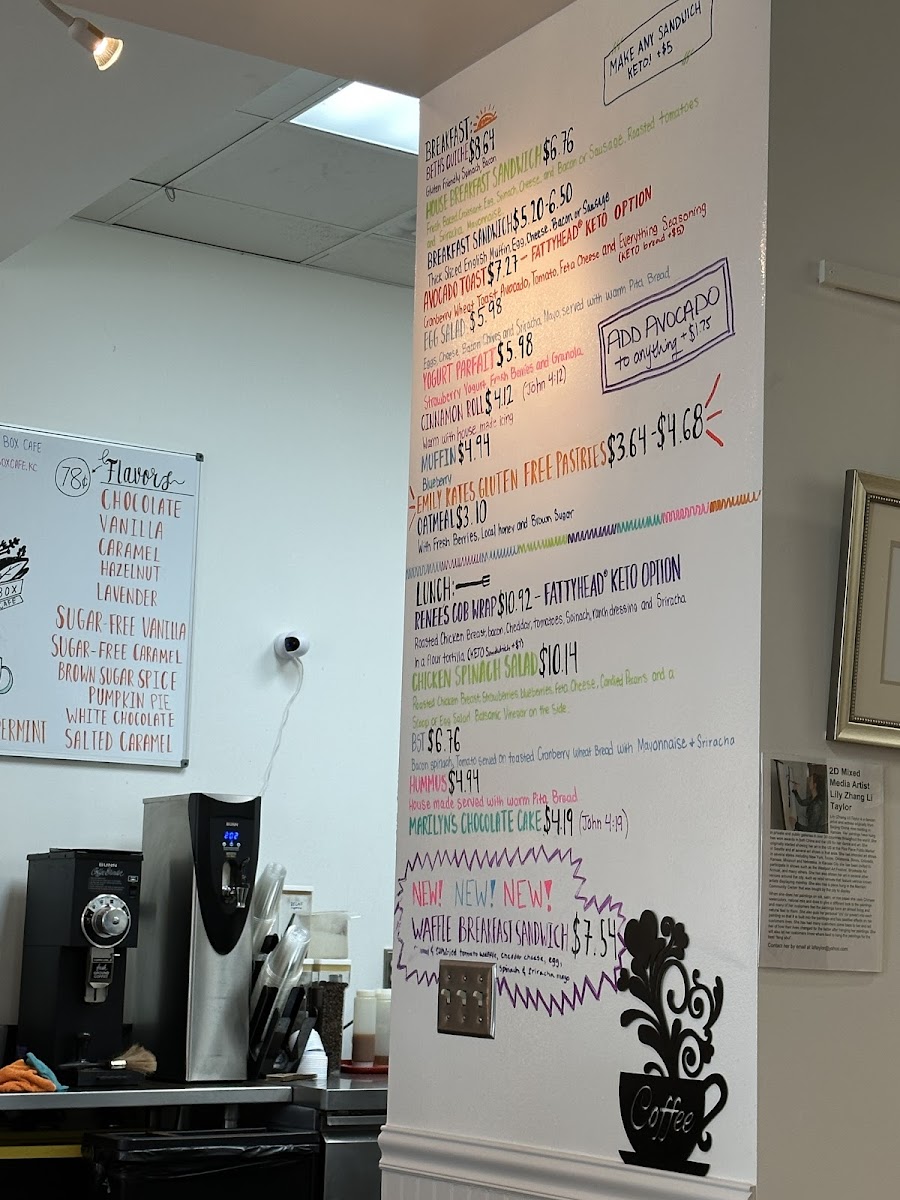 MAKE ANY SANDWICH
KETO! +$5
BREAKFAST:
BETHS QUICHE $8.64
Gluten Friendly Spinach, Bacon
HOUSE BREAKFAST SANDWICH $6.76
Fresh Baked Croissant, Egg, Spinach, Cheese and Bacon or Sausage, Roasted tomatoes
and Sriracha Mayonnaise
BREAKFAST SANDWICH $5.20-6.50
Thick Sliced English Muffin, Egg, Cheese, Bacon or Sausage
AVOCADO TOAST $7.27 - FATTYHEAD® KETO OPTION
Cranberry Wheat Toast, Avocado, Tomato, Feta Cheese and Everything Seasoning
(KETO bread +$5)
EGG SALAD $5.98
Eggs, Cheese, Bacon, Chives and Sriracha Mayo, served with warm Pita Bread
YOGURT PARFAIT $5.98
Strawberry Yogurt, Fresh Berries and Granola
CINNAMON ROLL $4.12 (John 4:12)
Warm with house made icing
MUFFIN $4.94
Blueberry
EMILY KATES GLUTEN FREE PASTRIES $3.64-$4.68
OATMEAL $3.10
With Fresh Berries, Local honey and Brown Sugar
ADD AVOCADO
to anything +$1.75
LUNCH:
RENEE'S COB WRAP $10.92 - FATTYHEAD® KETO OPTION
Roasted Chicken Breast, bacon, Cheddar, tomatoes, Spinach, ranch dressing and Sriracha
In a flour tortilla (KETO Sandwich +$7)
CHICKEN SPINACH SALAD $10.14
Roasted Chicken Breast, Strawberries, blueberries, Feta Cheese, Candied Pecans and a
Scoop of Egg Salad. Balsamic Vinegar on the Side.
BST $6.76
Bacon, spinach, Tomato served on toasted Cranberry Wheat Bread with Mayonnaise + Sriracha
HUMMUS $4.94
House made served with warm Pita Bread
MARILYN'S CHOCOLATE CAKE $4.19 (John 4:19)
NEW! NEW! NEW!
WAFFLE BREAKFAST SANDWICH $7.54
tomato waffle, cheddar cheese, egg,
spinach & sriracha mayo
Coffee
BOX CAFE
BOXCAFE.KC
78¢ Flavors
CHOCOLATE
VANILLA
CARAMEL
HAZELNUT
LAVENDER
SUGAR-FREE VANILLA
SUGAR-FREE CARAMEL
BROWN SUGAR SPICE
PUMPKIN PIE
WHITE CHOCOLATE
PERMINT SALTED CARAMEL
BOX
CAFE
BUNN
BUNN
202
2D Mixed
Media Artist
Lily Zhang Li
Taylor